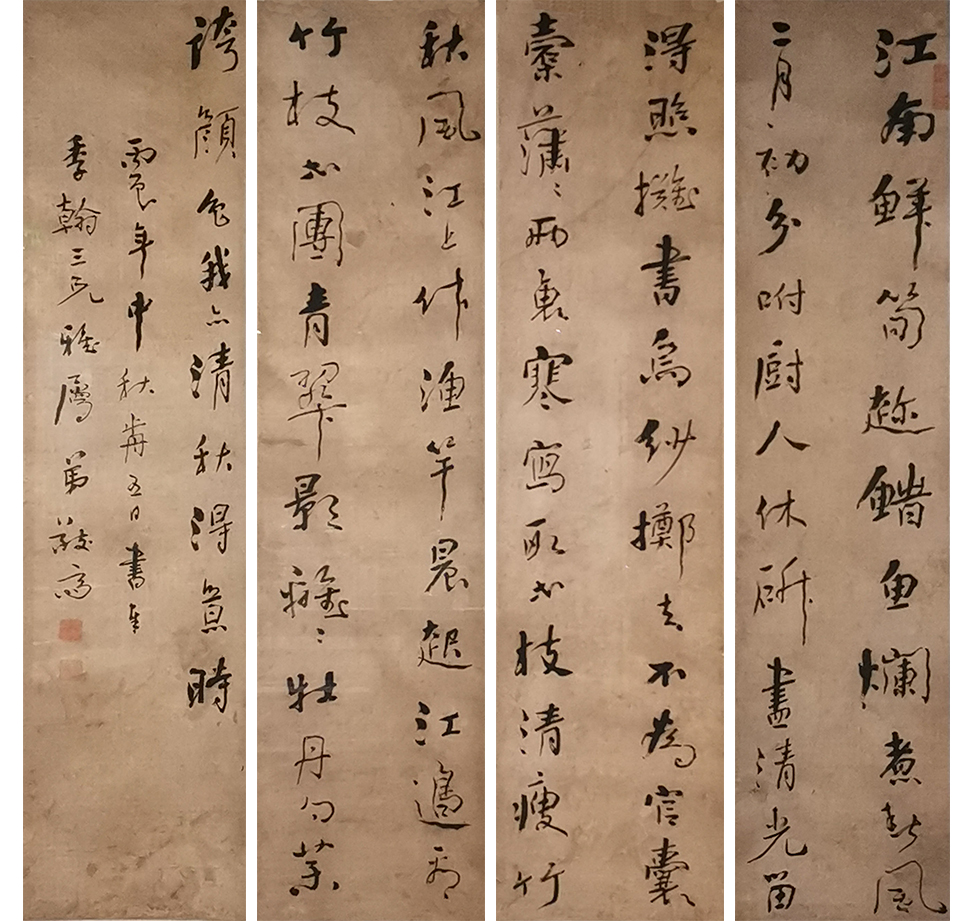 江南鮮筍趂鰣魚爛煮春風
二月初分咐厨人休斫盡清光留
得照攤書烏紗擲去不為官囊
橐蕭〻兩袖寒寫取一枝清瘦竹
秋風江上作漁竿晨起江邊看
竹枝一團青翠影離〻牡丹勾葉
誇顏色我亦清秋得意時
年中秋前五日書奉
季翰三兄雅屬 弟